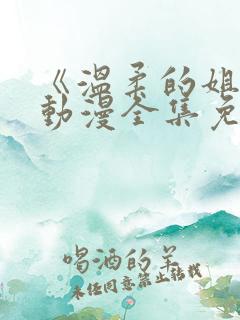 《温柔的姐
动漫全集免
喝酒的羊
未经同意禁止转载